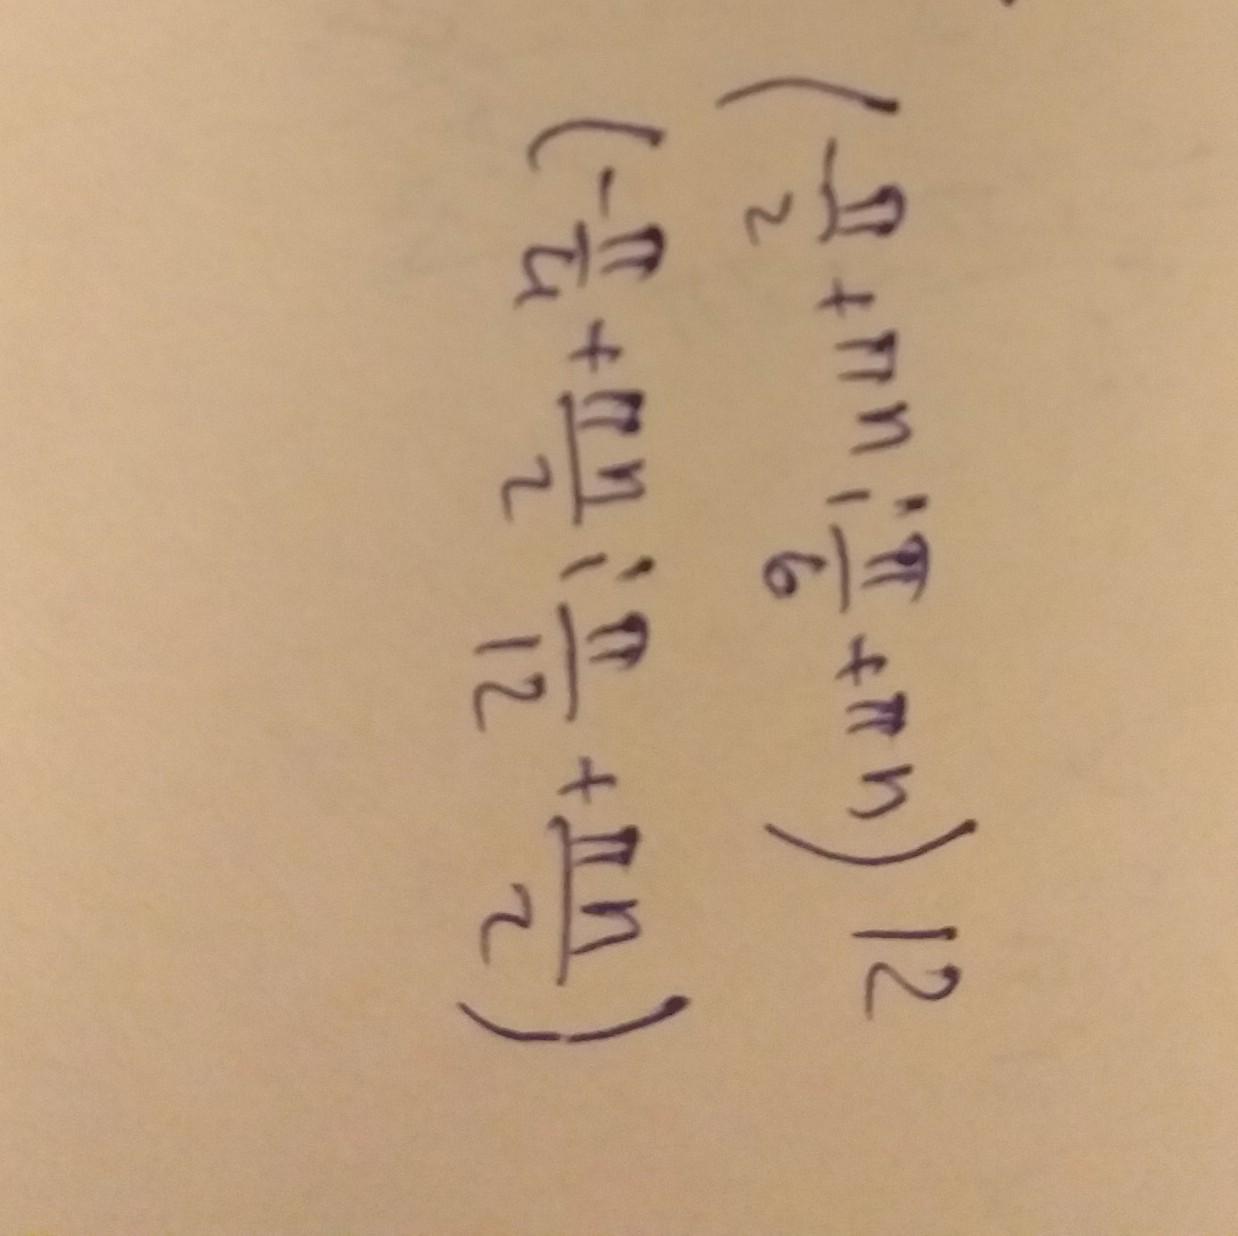 (-π/2 + πn; π/6 + πn) | 2
(-π/4 + πn/2; π/12 + πn/2)